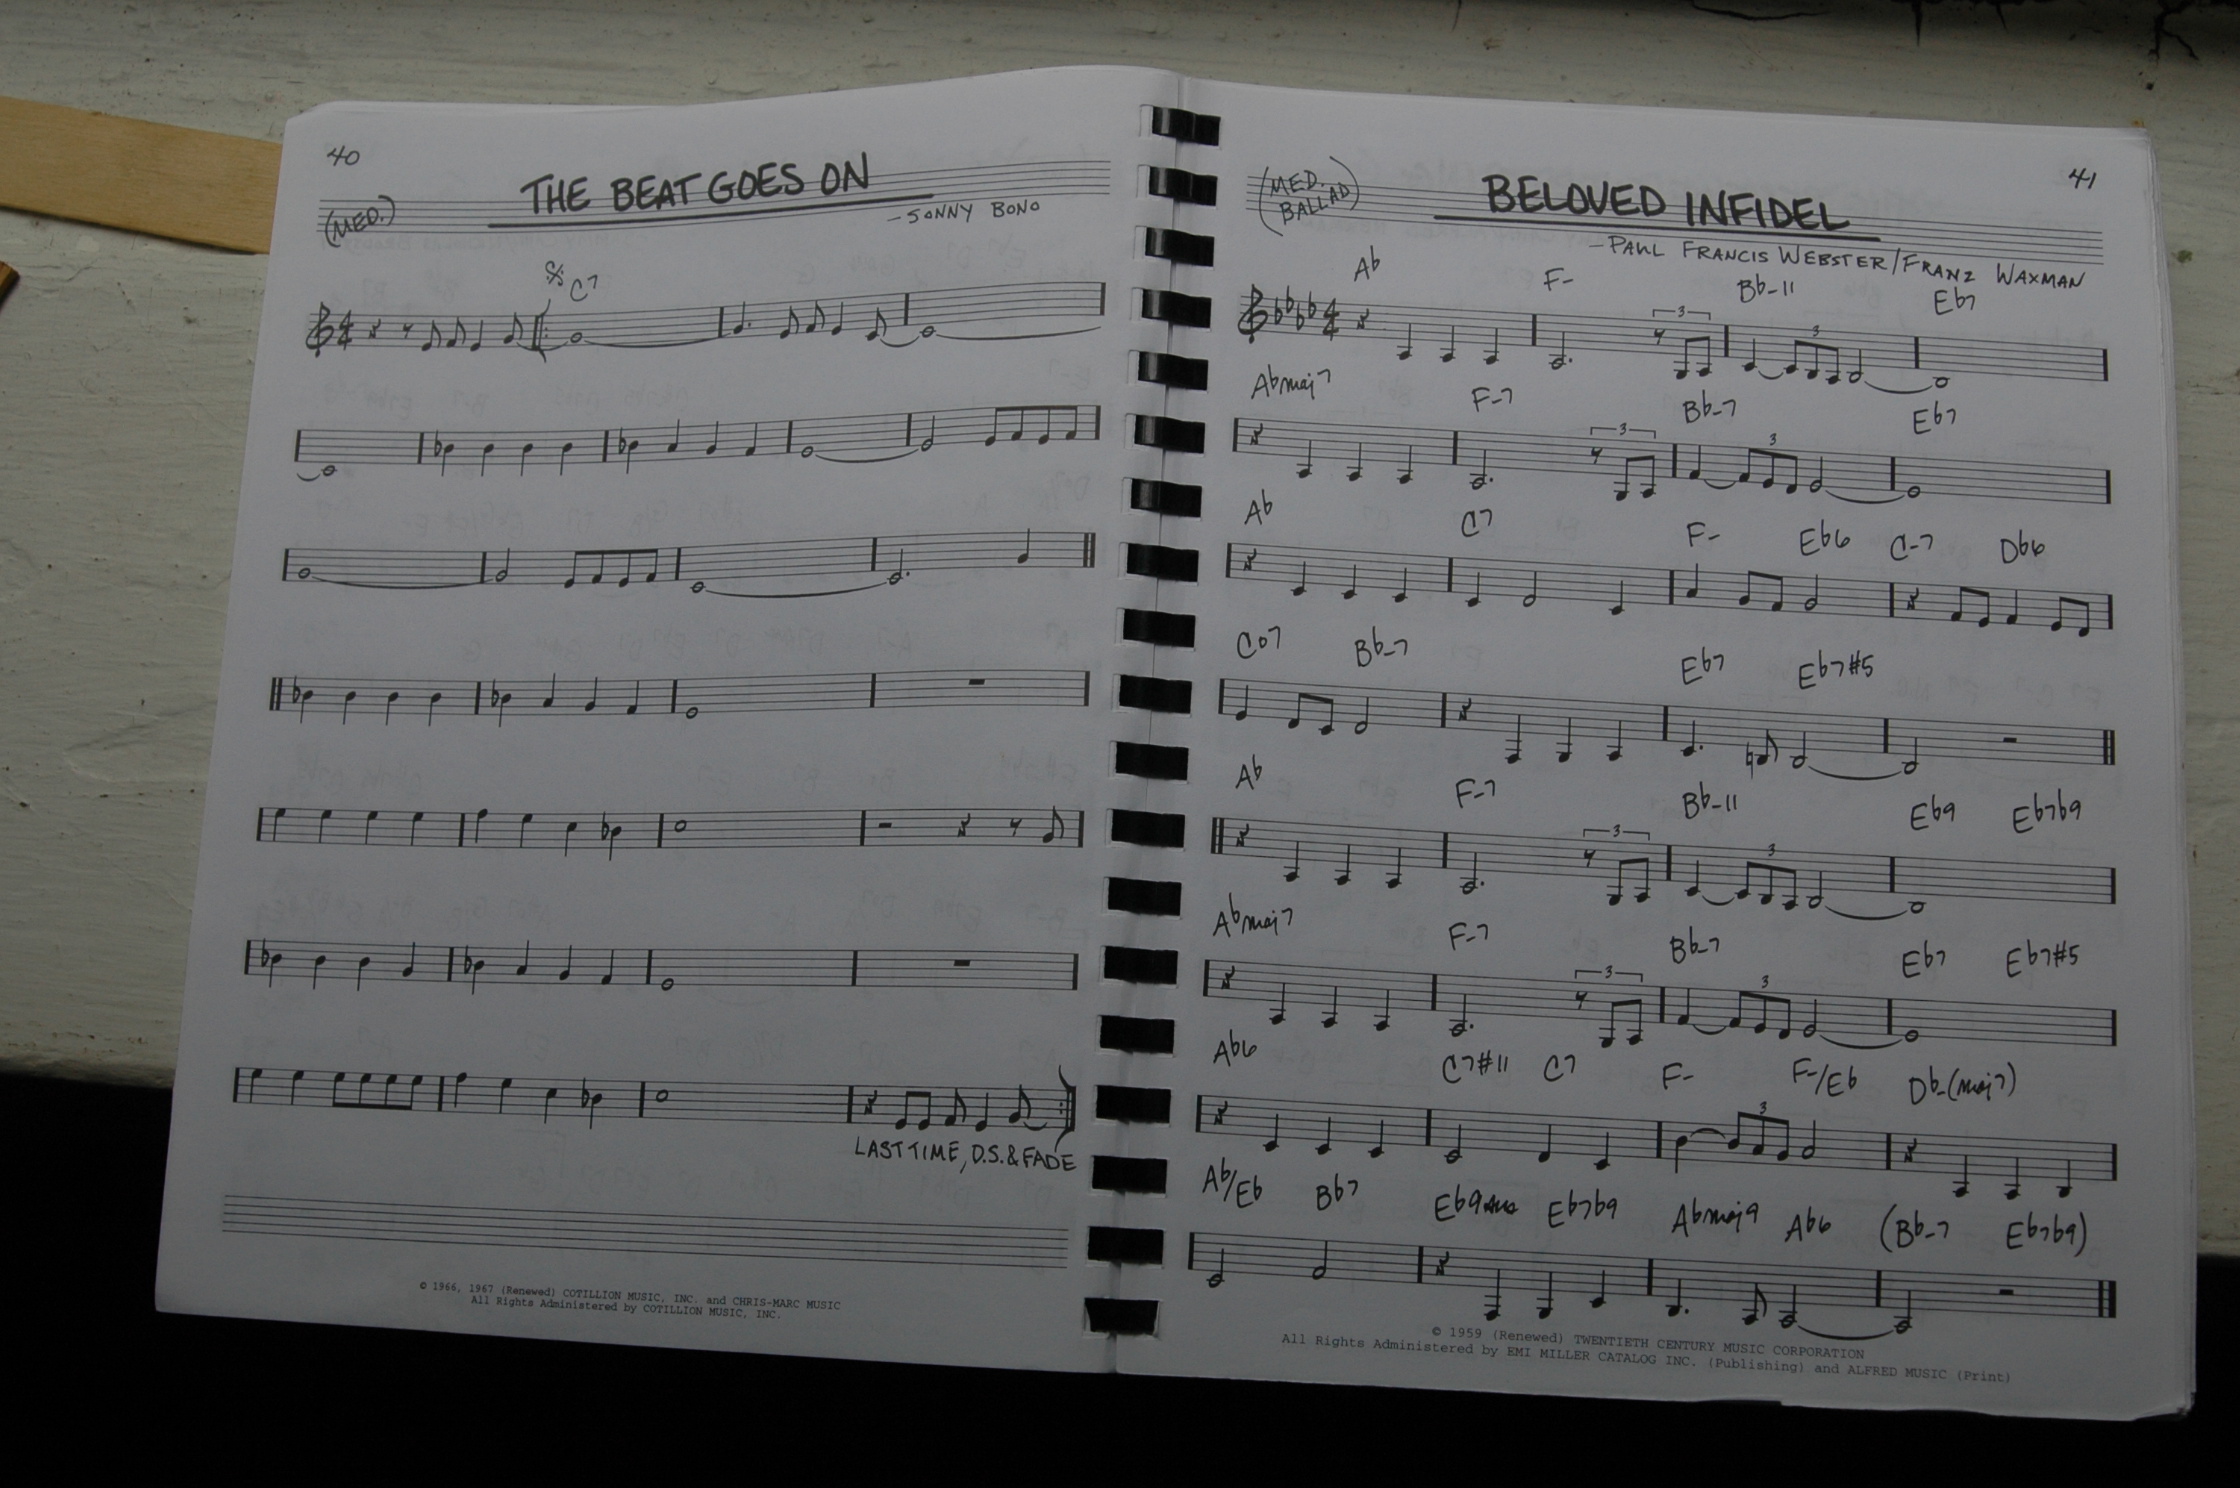 40
THE BEAT GOES ON
(MED.)
-SONNY BONO
C7
LAST TIME, D.S. & FADE
© 1966, 1967 (Renewed) COTILLION MUSIC, INC. and CHRIS-MARC MUSIC
All Rights Administered by COTILLION MUSIC, INC.
41
(MED. BALLAD)
BELOVED INFIDEL
-PAUL FRANCIS WEBSTER/FRANZ WAXMAN
Ab F- Bb-11 Eb7
3 3
Abmaj7 F-7 Bb-7 Eb7
3 3
Ab C7 F- Eb6 C-7 Db6
Co7 Bb-7 Eb7 Eb7#5
Ab F-7 Bb-11 Eb9 Eb7b9
3 3
Abmaj7 F-7 Bb-7 Eb7 Eb7#5
3 3
Ab6 C7#11 C7 F- F-/Eb Db-(maj7)
3
Ab/Eb Bb7 Eb9sus Eb7b9 Abmaj9 Ab6 (Bb-7 Eb7b9)
© 1959 (Renewed) TWENTIETH CENTURY MUSIC CORPORATION
All Rights Administered by EMI MILLER CATALOG INC. (Publishing) and ALFRED MUSIC (Print)